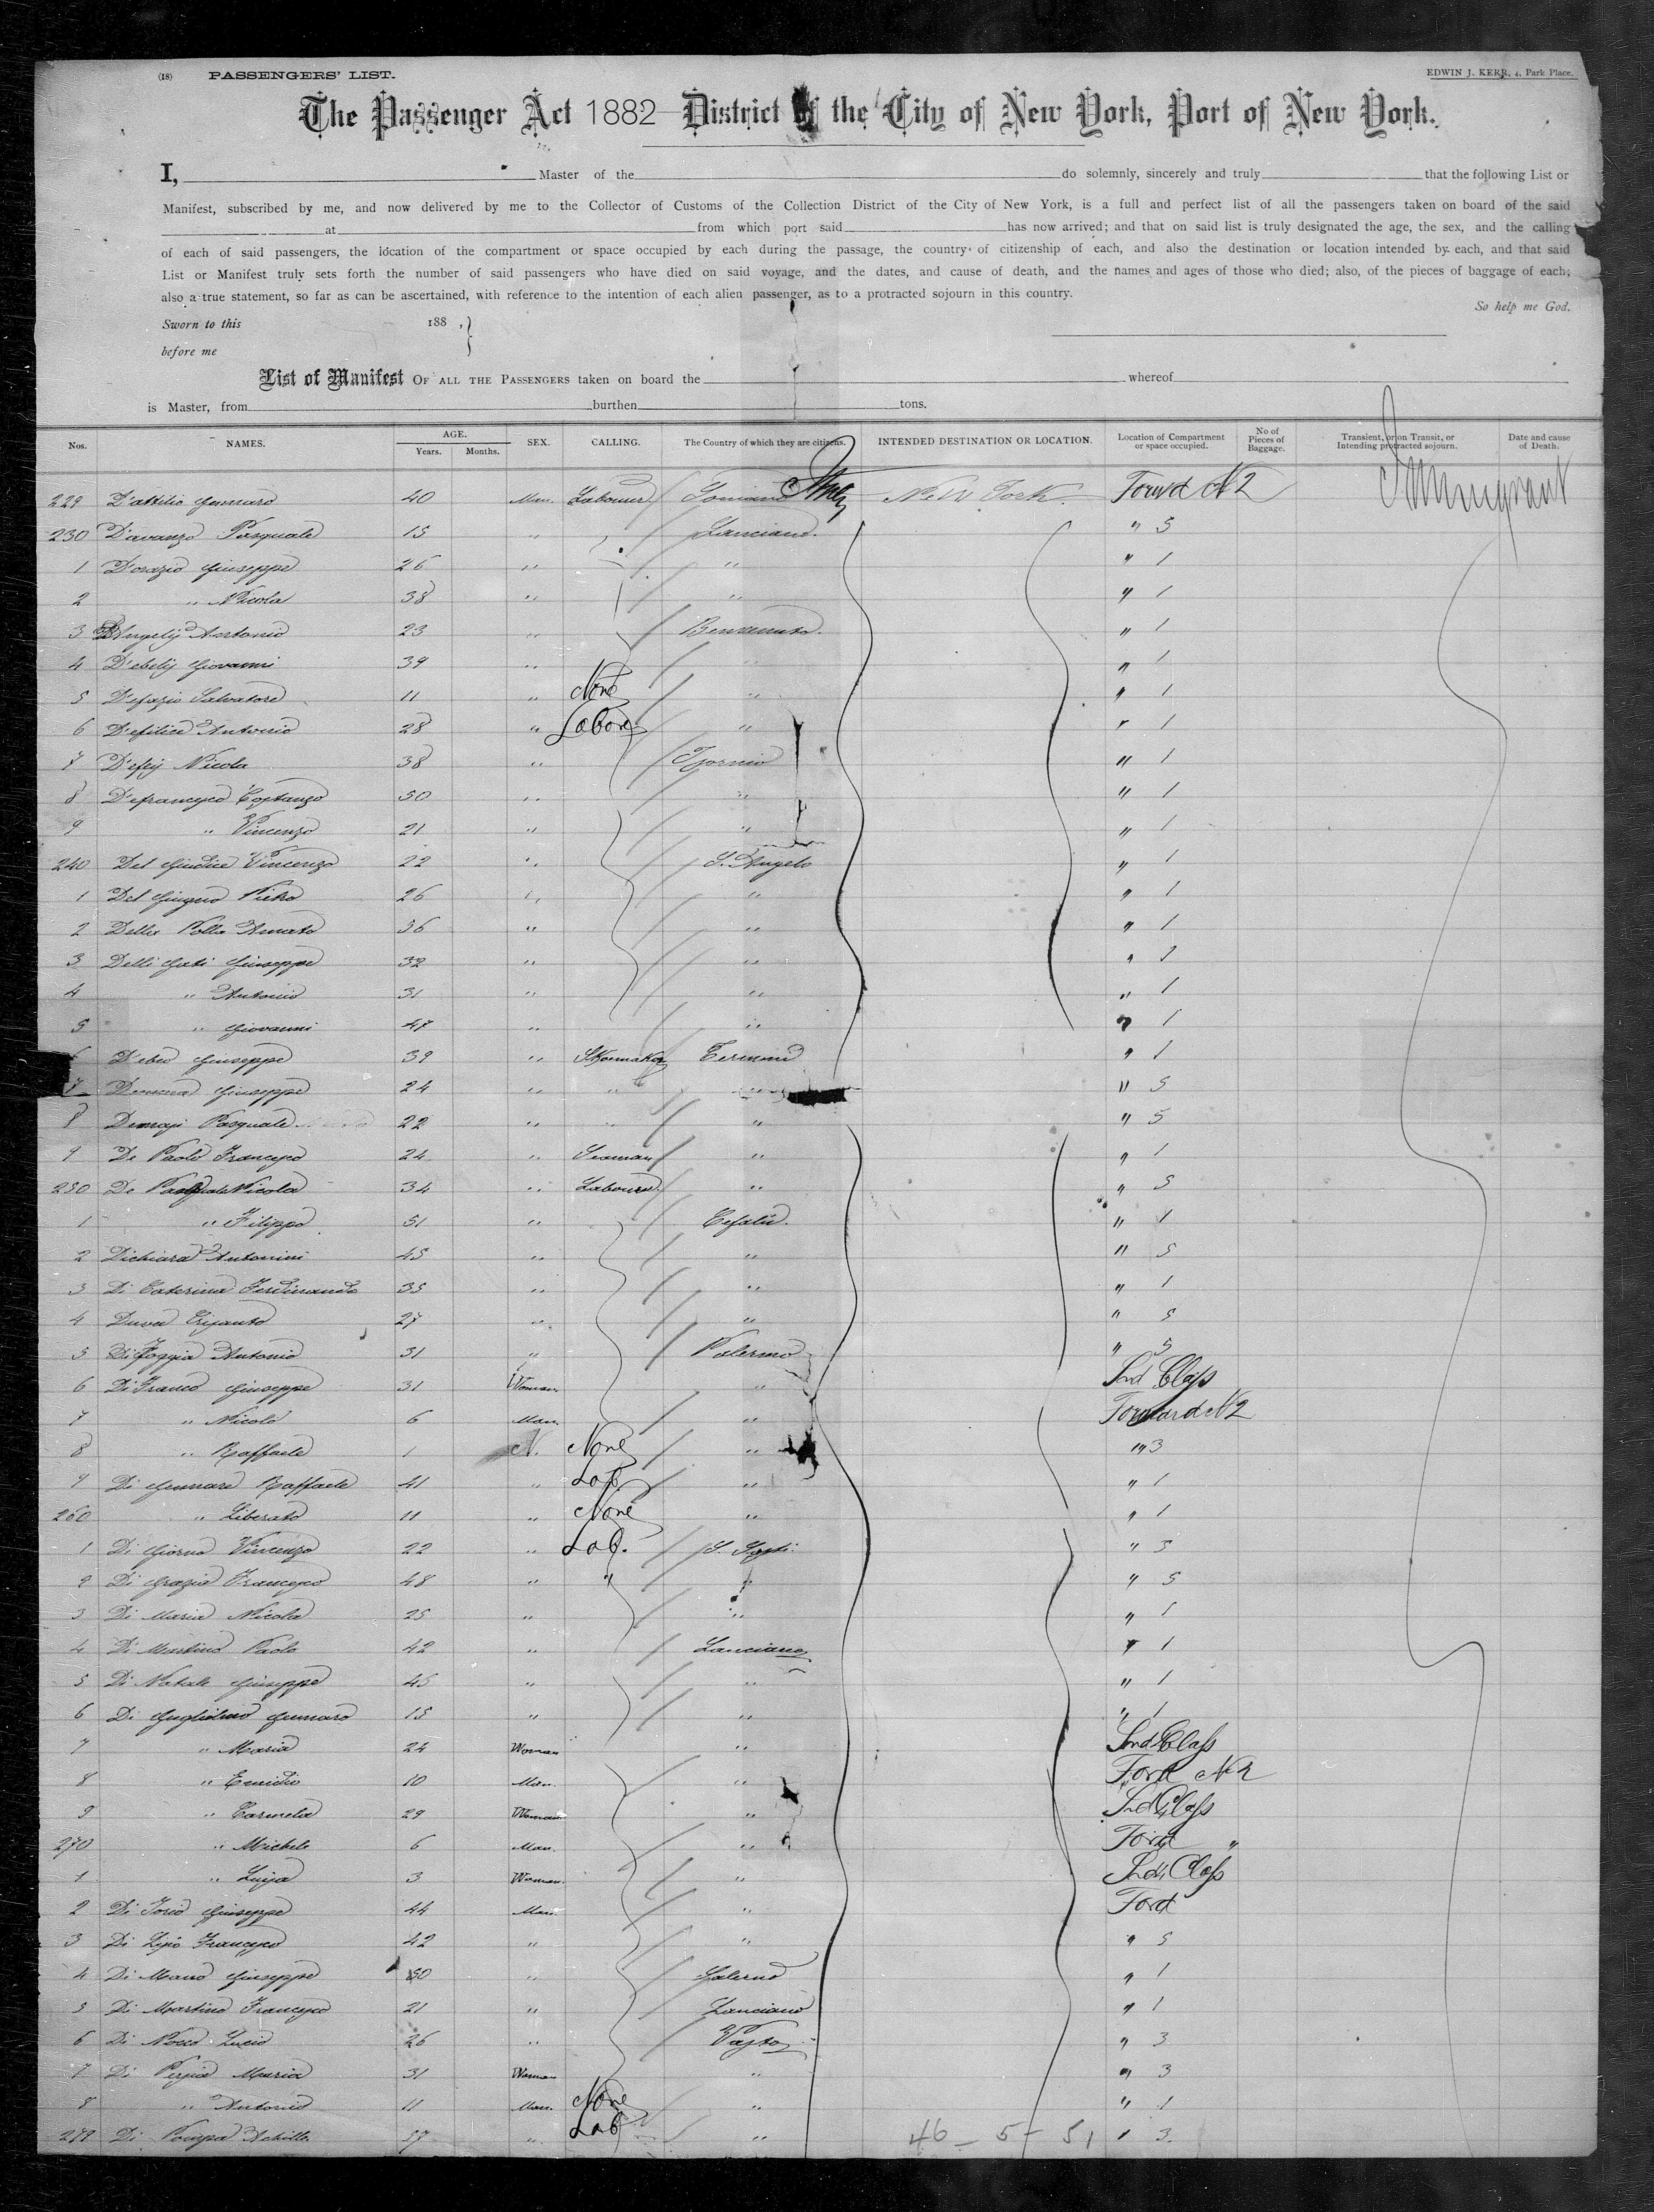 (18) PASSENGERS' LIST. EDWIN J. KERR, 4, Park Place.
The Passenger Act 1882 District of the City of New York, Port of New York.
I, Master of the do solemnly, sincerely and truly that the following List or
Manifest, subscribed by me, and now delivered by me to the Collector of Customs of the Collection District of the City of New York, is a full and perfect list of all the passengers taken on board of the said
at from which port said has now arrived; and that on said list is truly designated the age, the sex, and the calling
of each of said passengers, the location of the compartment or space occupied by each during the passage, the country of citizenship of each, and also the destination or location intended by each, and that said
List or Manifest truly sets forth the number of said passengers who have died on said voyage, and the dates, and cause of death, and the names and ages of those who died; also, of the pieces of baggage of each;
also a true statement, so far as can be ascertained, with reference to the intention of each alien passenger, as to a protracted sojourn in this country.
So help me God.
Sworn to this 188 ,
before me
List of Manifest OF ALL THE PASSENGERS taken on board the whereof
is Master, from burthen tons.
Nos. NAMES. AGE. Years. Months. SEX. CALLING. The Country of which they are citizens. INTENDED DESTINATION OR LOCATION. Location of Compartment or space occupied. No of Pieces of Baggage. Transient, or on Transit, or Intending protracted sojourn. Date and cause of Death.
229 D'attilio Gennaro 40 Man Labourer Italy New York Forwd N2 Immigrant
230 D'avanzo Pasquale 15 " Lanciano. " 5
1 D'orazio Giuseppe 26 " " " 1
2 " Nicola 38 " " " 1
3 D'Angelis Antonio 23 " " 1
4 Giovanni 39 " " " 1
5 Defazio Salvatore 11 " None " " 1
6 Defilice Antonio 28 " Labore " " 1
7 Nicola 38 " " 1
8 Defrancesco Costanzo 50 " " " 1
9 " Vincenzo 21 " " " 1
240 Del Giudice Vincenzo 22 " S. Angelo " 1
1 Del Giugno Pietro 26 " " " 1
2 Della Polla Amato 36 " " " 1
3 Delli Gati Giuseppe 32 " " " 1
4 " Antonio 31 " " " 1
5 " Giovanni 47 " " " 1
Giuseppe 39 " Shoemaker " 1
7 Giuseppe 24 " " " " 5
8 Pasquale 22 " " " " 5
9 De Paolo Francesco 24 " Seaman " " 1
250 De Pasquale Nicola 34 " Labourer " " 5
1 " Filippo 51 " Cefalù. " 1
2 Dichiara Antonini 45 " " " 5
3 Di Caterina Ferdinando 35 " " " 1
4 27 " " " 5
5 Di Foggia Antonio 31 " Palermo " 5
6 Di Franco Giuseppe 31 Woman " 2nd Class
7 " Nicolò 6 Man " Forward N2
8 " Raffaele 1 None " " 3
9 Di Gennaro Raffaele 41 " Lab. " " 1
260 " Liberato 11 " None " " 1
1 Di Giorno Vincenzo 22 " Lab. " 3
2 Di Grazia Francesco 48 " " " " 5
3 Di Maria Nicola 25 " " " 1
4 Di Martino Paolo 42 " Lanciano " 1
5 Di Natale Giuseppe 45 " " " 1
6 Di Guglielmo Gennaro 15 " " " 1
7 " Maria 24 Woman " 2nd Class
8 " Emidio 10 Man. " Ford N2
9 " Carmela 29 Woman " 2nd Class
270 " Michele 6 Man. " Ford "
1 " Luisa 3 Woman " 2nd Class
2 Di Iorio Giuseppe 44 Man " Ford
3 Di Francesco 42 " " " 5
4 Di Mauro Giuseppe 50 " Salerno " 1
5 Di Martino Francesco 21 " Lanciano " 1
6 Di Nocco Lucio 26 " Vasto " 3
7 Di Maria 31 Woman " " 3
8 " Antonio 11 Man. None " " 1
279 Di Pompa Achille 37 " Lab " " 3
46 – 5 – 51